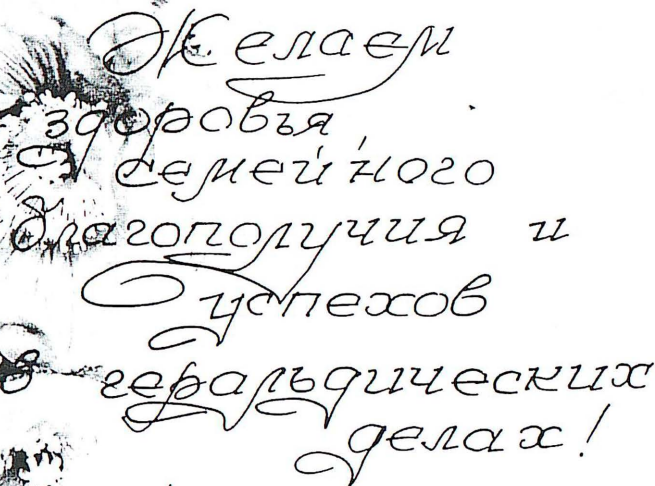 Желаем
здоровья,
семейного
благополучия и
успехов
в геральдических
делах!